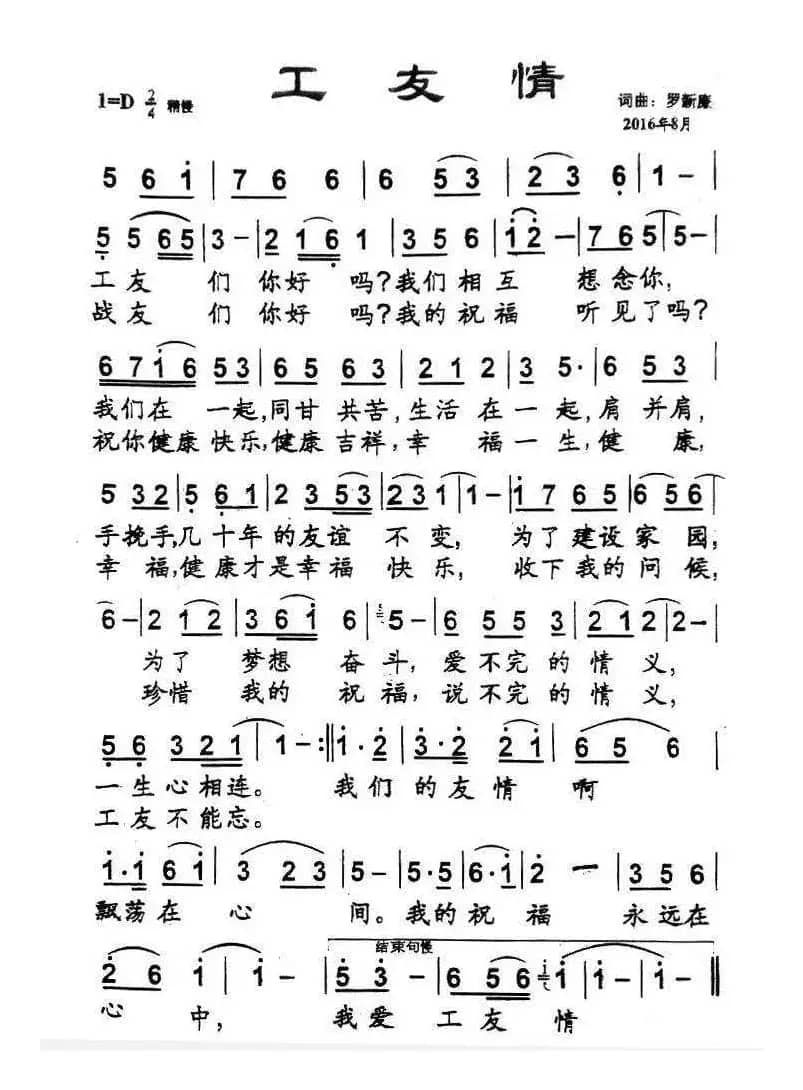 工友情
1=D 2/4 稍慢
词曲：罗新廉
2016年8月
5 6 1 | 7 6 6 6 | 6 5 3 | 2 3 6 | 1 – |
5 5 6 5 | 3 – | 2 1 6 | 1 – | 3 5 6 | 1 2 – | 7 6 5 | 5 – |
工友 们你好 吗?我们相互 想念你,
战友 们你好 吗?我的祝福 听见了吗?
6 7 1 6 5 3 | 6 5 6 3 | 2 1 2 | 3 5 · | 6 5 3 |
我们在 一起,同甘 共苦,生活 在一起,肩并肩,
祝你健康快乐,健康吉祥,幸 福一生,健 康,
5 3 2 | 5 6 1 | 2 3 5 3 | 2 3 1 | 1 – | 1 7 6 5 | 6 5 6 |
手挽手,几十年的友谊 不变, 为了建设家园,
幸 福,健康才是幸福 快乐, 收下我的问候,
6 – | 2 1 2 | 3 6 1 6 | 5 – | 6 5 5 3 | 2 1 2 | 2 – |
为了 梦想 奋斗, 爱不完的情义,
珍惜 我的 祝福, 说不完的情义,
5 6 3 2 1 | 1 – :‖ 1 · 2 | 3 · 2 | 2 1 2 | 6 5 6 |
一生心相连。 我们的友情 啊
工友不能忘。
1 · 1 6 1 | 3 2 3 | 5 – | 5 · 5 | 6 · 1 | 2 – | 3 5 6 |
飘荡在 心 间。我的祝福 永远在
结束句慢
2 6 | 1 | 1 – | 5 3 – | 6 5 6 | 1 | 1 – ‖
心 中, 我爱 工友 情